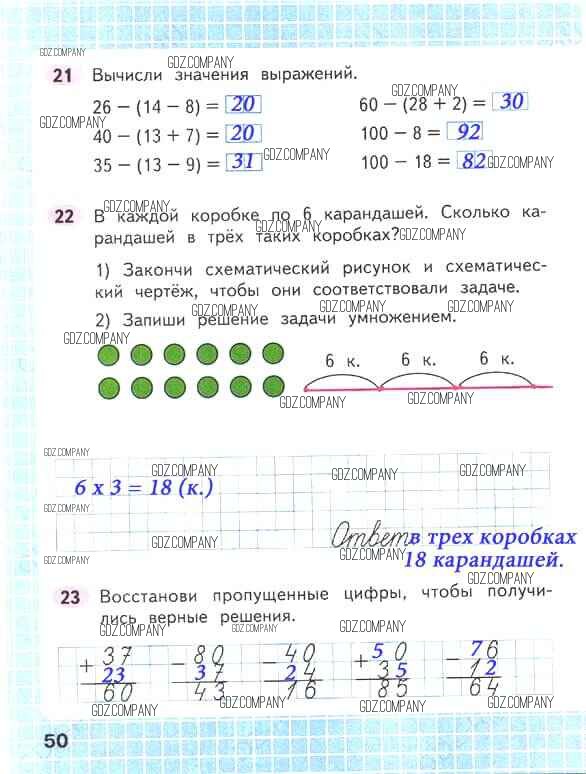 GDZ.COMPANY
GDZ.COMPANY
21 Вычисли значения выражений.
26 − (14 − 8) = 20
GDZ.COMPANY
60 − (28 + 2) = 30
GDZ.COMPANY
40 − (13 + 7) = 20
100 − 8 = 92
GDZ.COMPANY
35 − (13 − 9) = 31
100 − 18 = 82
GDZ.COMPANY
GDZ.COMPANY
22 В каждой коробке по 6 карандашей. Сколько ка-
GDZ.COMPANY
рандашей в трёх таких коробках?
GDZ.COMPANY
1) Закончи схематический рисунок и схематичес-
кий чертёж, чтобы они соответствовали задаче.
GDZ.COMPANY
GDZ.COMPANY
GDZ.COMPANY
2) Запиши решение задачи умножением.
GDZ.COMPANY
6 к. 6 к. 6 к.
GDZ.COMPANY
GDZ.COMPANY
GDZ.COMPANY
GDZ.COMPANY
GDZ.COMPANY
GDZ.COMPANY
6 x 3 = 18 (к.)
GDZ.COMPANY
Ответ в трех коробках
GDZ.COMPANY
GDZ.COMPANY
18 карандашей.
GDZ.COMPANY
GDZ.COMPANY
23 Восстанови пропущенные цифры, чтобы получи-
лись верные решения.
GDZ.COMPANY
GDZ.COMPANY
GDZ.COMPANY
+ 37 − 80 − 40 + 50 − 76
23 37 24 35 12
60 43 16 85 64
GDZ.COMPANY
GDZ.COMPANY
GDZ.COMPANY
GDZ.COMPANY
50